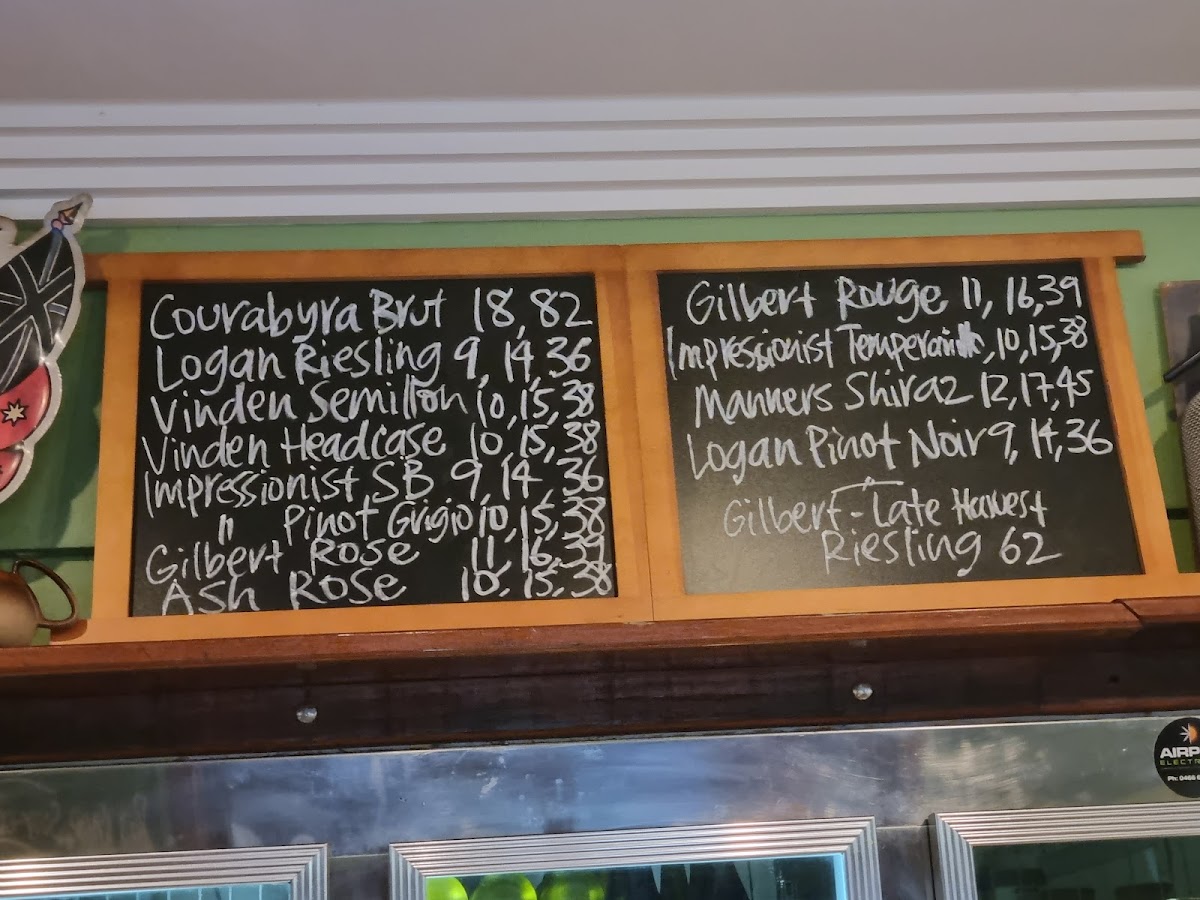 Courabyra Brut 18, 82
Logan Riesling 9, 14, 36
Vinden Semillon 10, 15, 38
Vinden Headcase 10, 15, 38
Impressionist SB 9, 14, 36
" Pinot Grigio 10, 15, 38
Gilbert Rose 11, 16, 39
Ash Rose 10, 15, 38
Gilbert Rouge 11, 16, 39
Impressionist 10, 15, 38
Manners Shiraz 12, 17, 45
Logan Pinot Noir 9, 14, 36
Gilbert - Late Harvest
Riesling 62
Ph: 0466